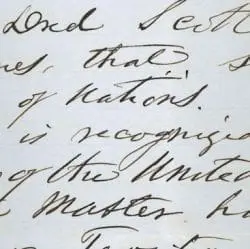 Dred Scott
that
of Nations.
is recognize
of the United
Master ha